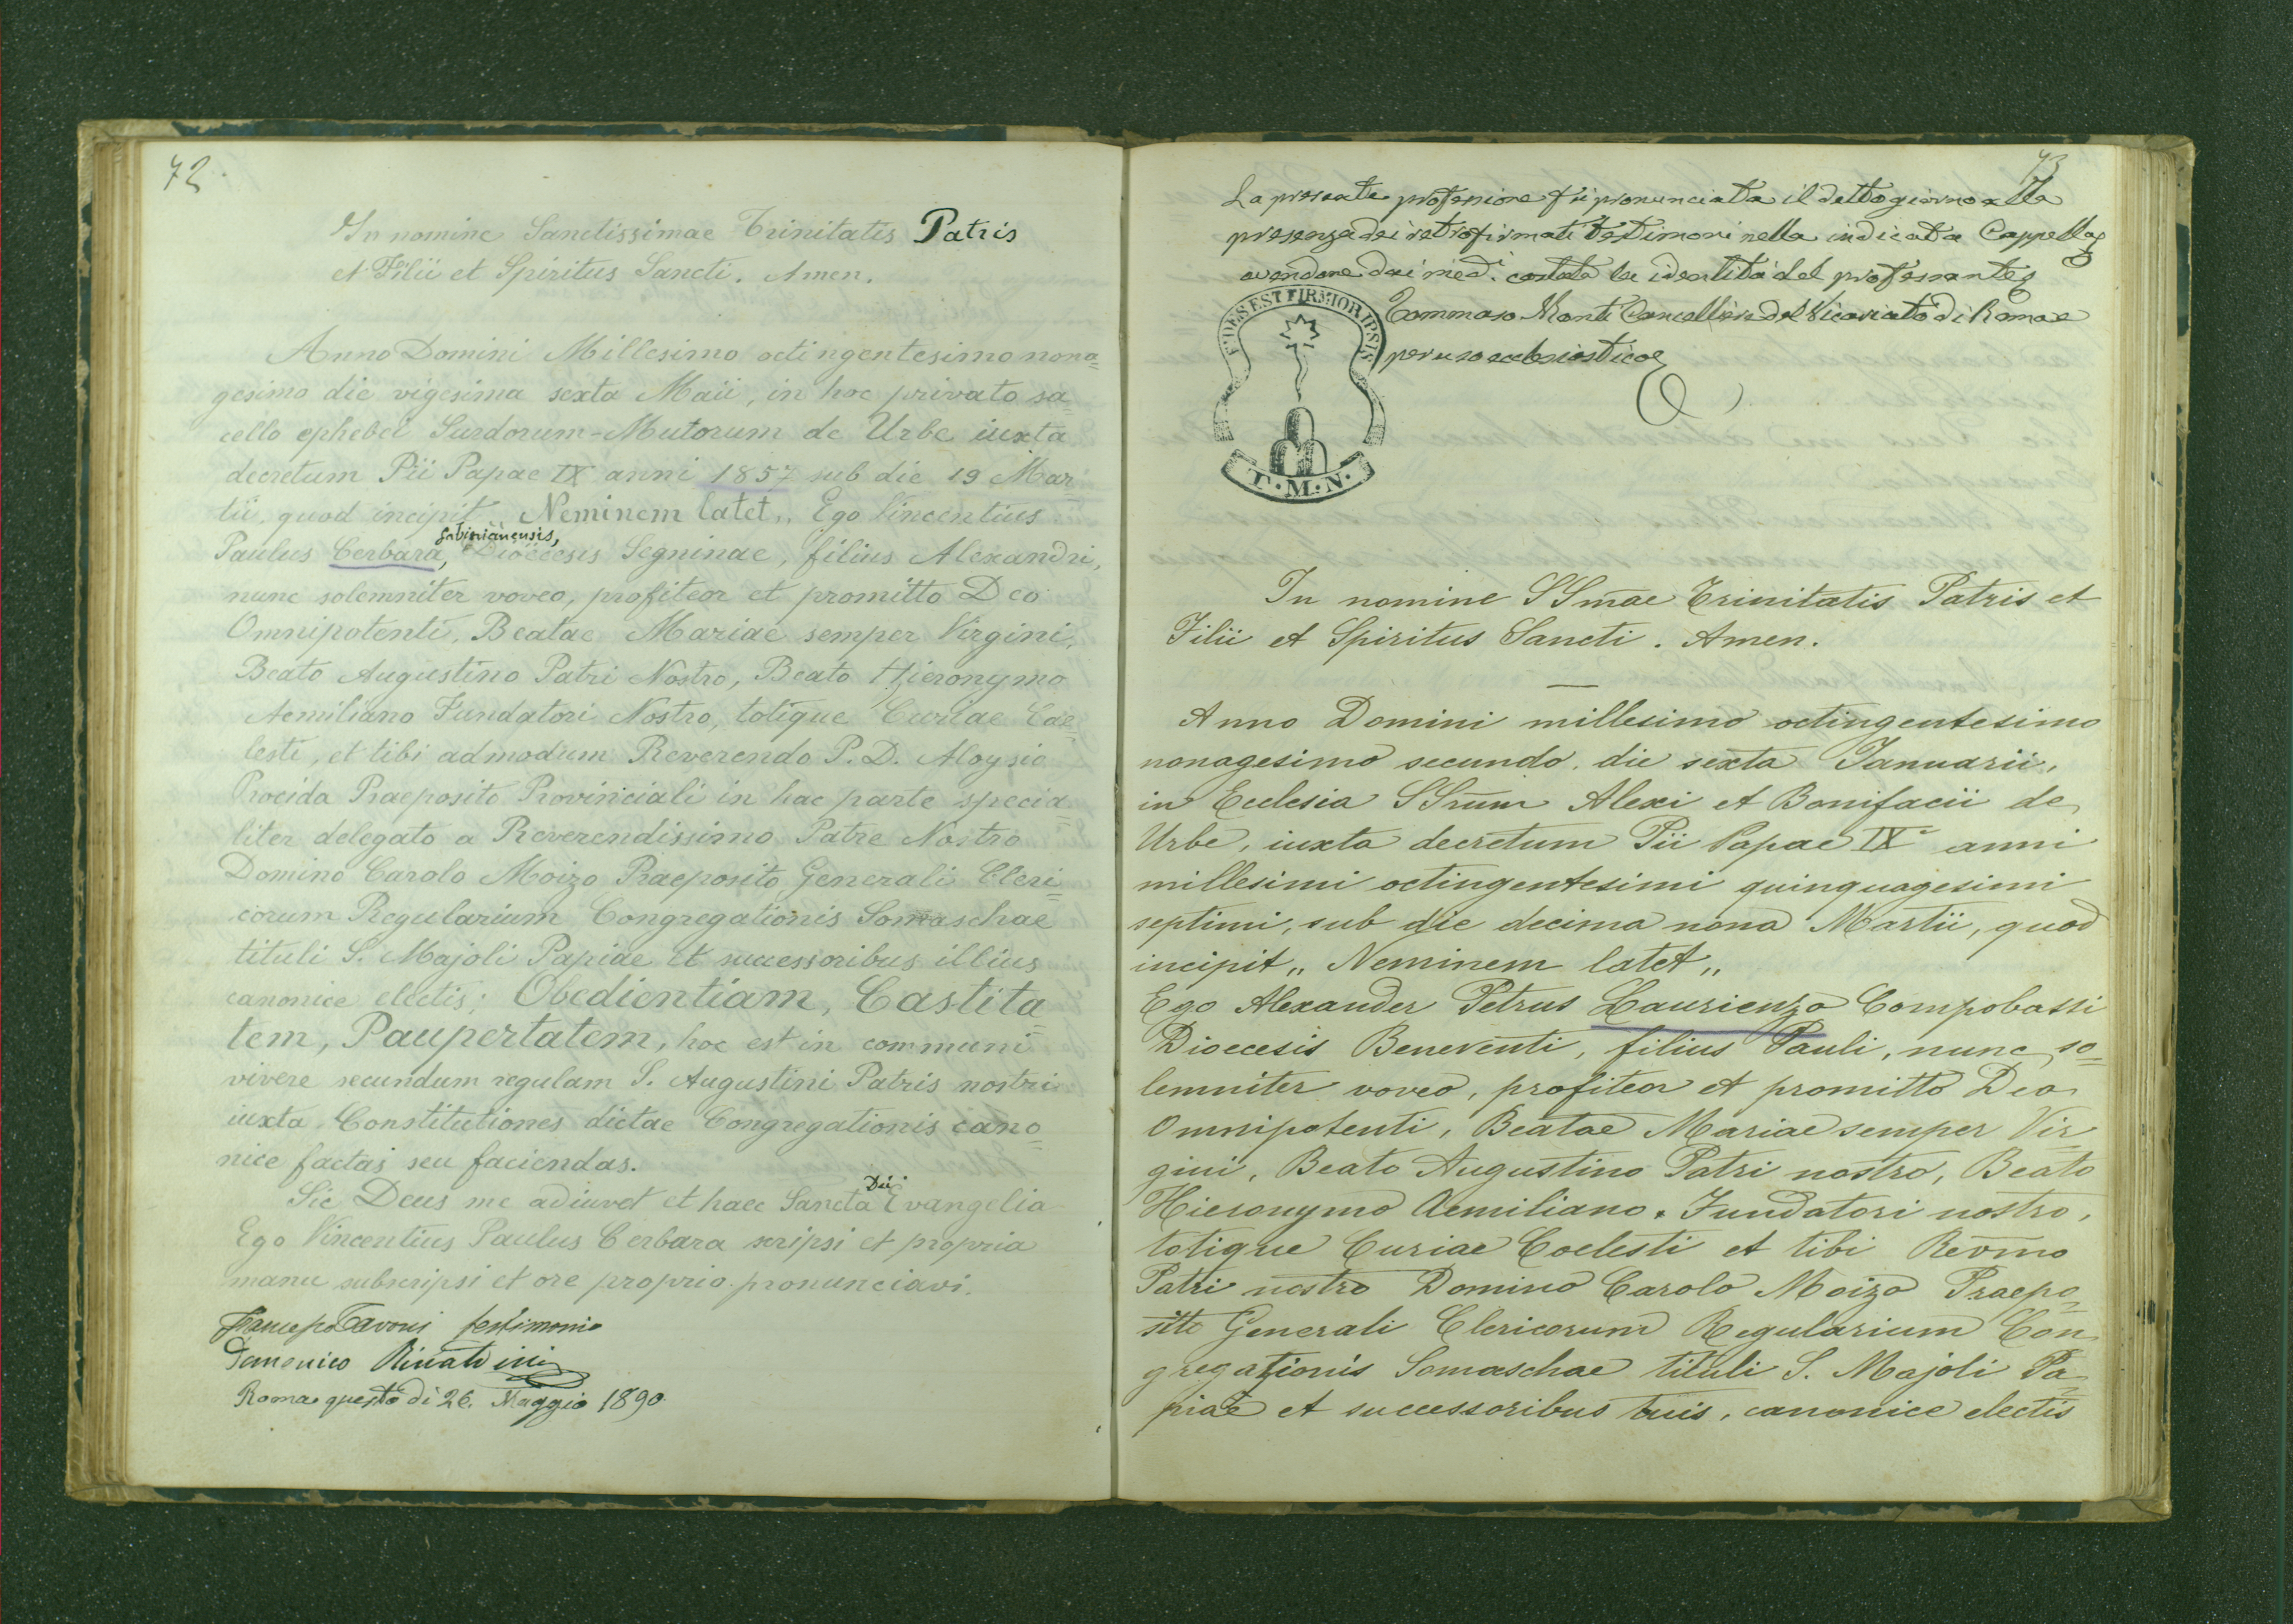 72.
In nomine Sanctissimae Trinitatis Patris
et Filii et Spiritus Sancti. Amen.
Anno Domini Millesimo octingentesimo nona=
gesimo die vigesima sexta Maii, in hoc privato sa=
cello ephebei Surdorum-Mutorum de Urbe iuxta
decretum Pii Papae IX anni 1857 sub die 19 Mar=
tii, quod incipit „Neminem latet„ Ego Vincentius
Gabinianensis,
Paulus Cerbara, Dioecesis Segninae, filius Alexandri,
nunc solemniter voveo, profiteor et promitto Deo
Omnipotenti, Beatae Mariae semper Virgini,
Beato Augustino Patri Nostro, Beato Hieronymo
Aemiliano Fundatori Nostro, totique Curiae Cae=
lesti, et tibi admodum Reverendo P. D. Aloysio
Procida Praeposito Provinciali in hac parte specia=
liter delegato a Reverendissimo Patre Nostro
Domino Carolo Moizo Praeposito Generali Cleri=
corum Regularium Congregationis Somaschae
tituli S. Majoli Papiae et successoribus illius
canonice electis; Obedientiam, Castita=
tem, Paupertatem, hoc est in communi
vivere secundum regulam S. Augustini Patris nostri
iuxta Constitutiones dictae Congregationis cano=
nice factas seu faciendas.
Sic Deus me adiuvet et haec Sancta Dei Evangelia
Ego Vincentius Paulus Cerbara scripsi et propria
manu subscripsi et ore proprio pronunciavi.
Tavoni testimonio
Domenico Rinaldini
Roma questo dì 26. Maggio 1890
73
La presente professione fu pronunciata il detto giorno alla
presenza dei retrofirmati testimoni nella indicata Cappella
avendone dai med.i la identità del professante
Tommaso Monti Cancelliere del Vicariato di Roma
per uso ecclesiastico
FIDES EST FIRMIOR IPSIS
T.M.N.
In nomine SSmae Trinitatis Patris et
Filii et Spiritus Sancti. Amen.
Anno Domini millesimo octingentesimo
nonagesimo secundo, die sexta Ianuarii,
in Ecclesia SSrum Alexi et Bonifacii de
Urbe, iuxta decretum Pii Papae IX anni
millesimi octingentesimi quinquagesimi
septimi, sub die decima nona Martii, quod
incipit „Neminem latet„
Ego Alexander Petrus Laurienzo Compobassi
Dioecesis Beneventi, filius Pauli, nunc so=
lemniter voveo, profiteor et promitto Deo
Omnipotenti, Beatae Mariae semper Vir=
gini, Beato Augustino Patri nostro, Beato
Hieronymo Aemiliano Fundatori nostro,
totique Curiae Coelesti et tibi Revmo
Patri nostro Domino Carolo Moizo Praepo=
sito Generali Clericorum Regularium Con=
gregationis Somaschae tituli S. Majoli Pa=
piae et successoribus tuis, canonice electis